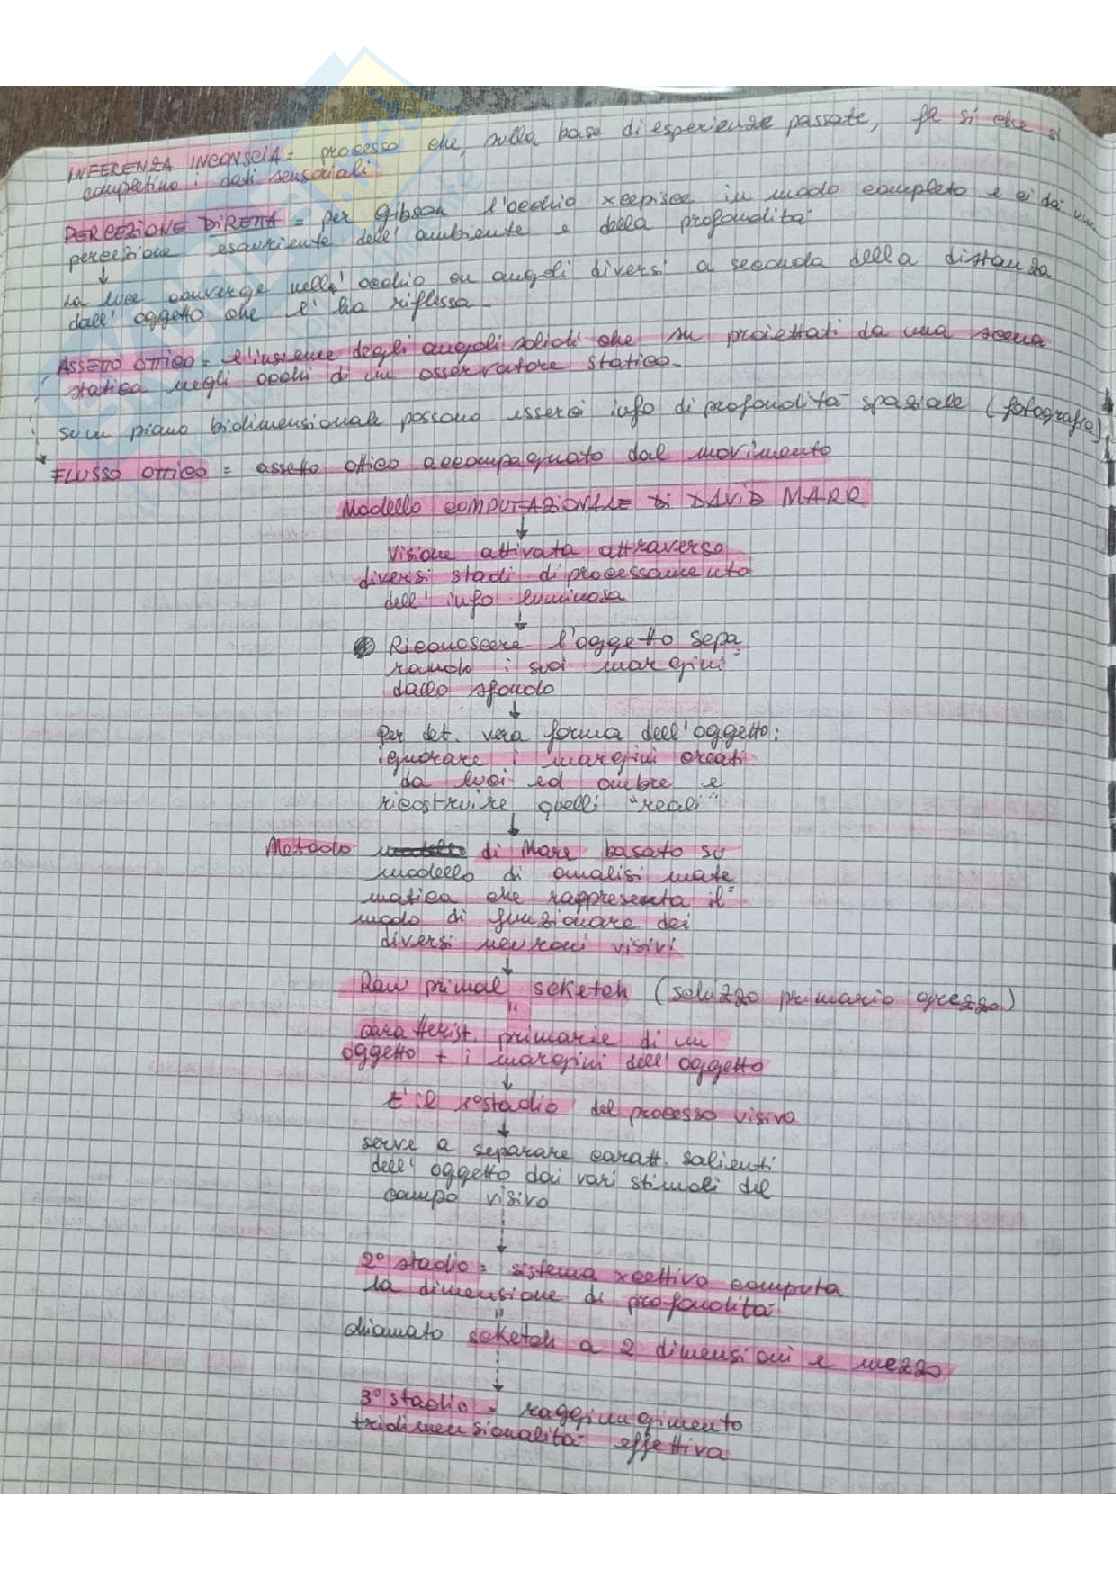 INFERENZA INCONSCIA = processo che, sulla base di esperienze passate, fa si che si
completino i dati sensoriali
PERCEZIONE DIRETTA = per Gibson l'occhio xcepisce in modo completo e ci dà una
percezione esauriente dell'ambiente e della profondità
↓
la luce converge nell'occhio su angoli diversi a seconda della distanza
dall'oggetto che l'ha riflessa
ASSETTO OTTICO = l'insieme degli angoli solidi che su proiettati da una scena
statica negli occhi di un osservatore statico.
su un piano bidimensionale possono esserci info di profondità spaziale (fotografie)
FLUSSO OTTICO = assetto ottico accompagnato dal movimento
Modello COMPUTAZIONALE DI DAVID MARR
↓
Visione attivata attraverso
diversi stadi di processamento
dell'info luminosa
↓
Riconoscere l'oggetto sepa
rando i suoi margini
dallo sfondo
↓
Per det. vera forma dell'oggetto:
ignorare i margini creati
da luci ed ombre e
ricostruire quelli "reali"
↓
Metodo di Marr basato su
modello di analisi mate
matica che rappresenta il
modo di funzionare dei
diversi neuroni visivi
↓
Raw primal scketch (schizzo primario grezzo)
"
caratterist. primarie di un
oggetto + i margini dell'oggetto
↓
E' il 1° stadio del processo visivo
↓
serve a separare caratt. salienti
dell'oggetto dai vari stimoli del
campo visivo
↓
2° stadio = sistema xcettivo computa
la dimensione di profondità
"
chiamato scketch a 2 dimensioni e mezzo
↓
3° stadio = raggiungimento
tridimensionalità effettiva